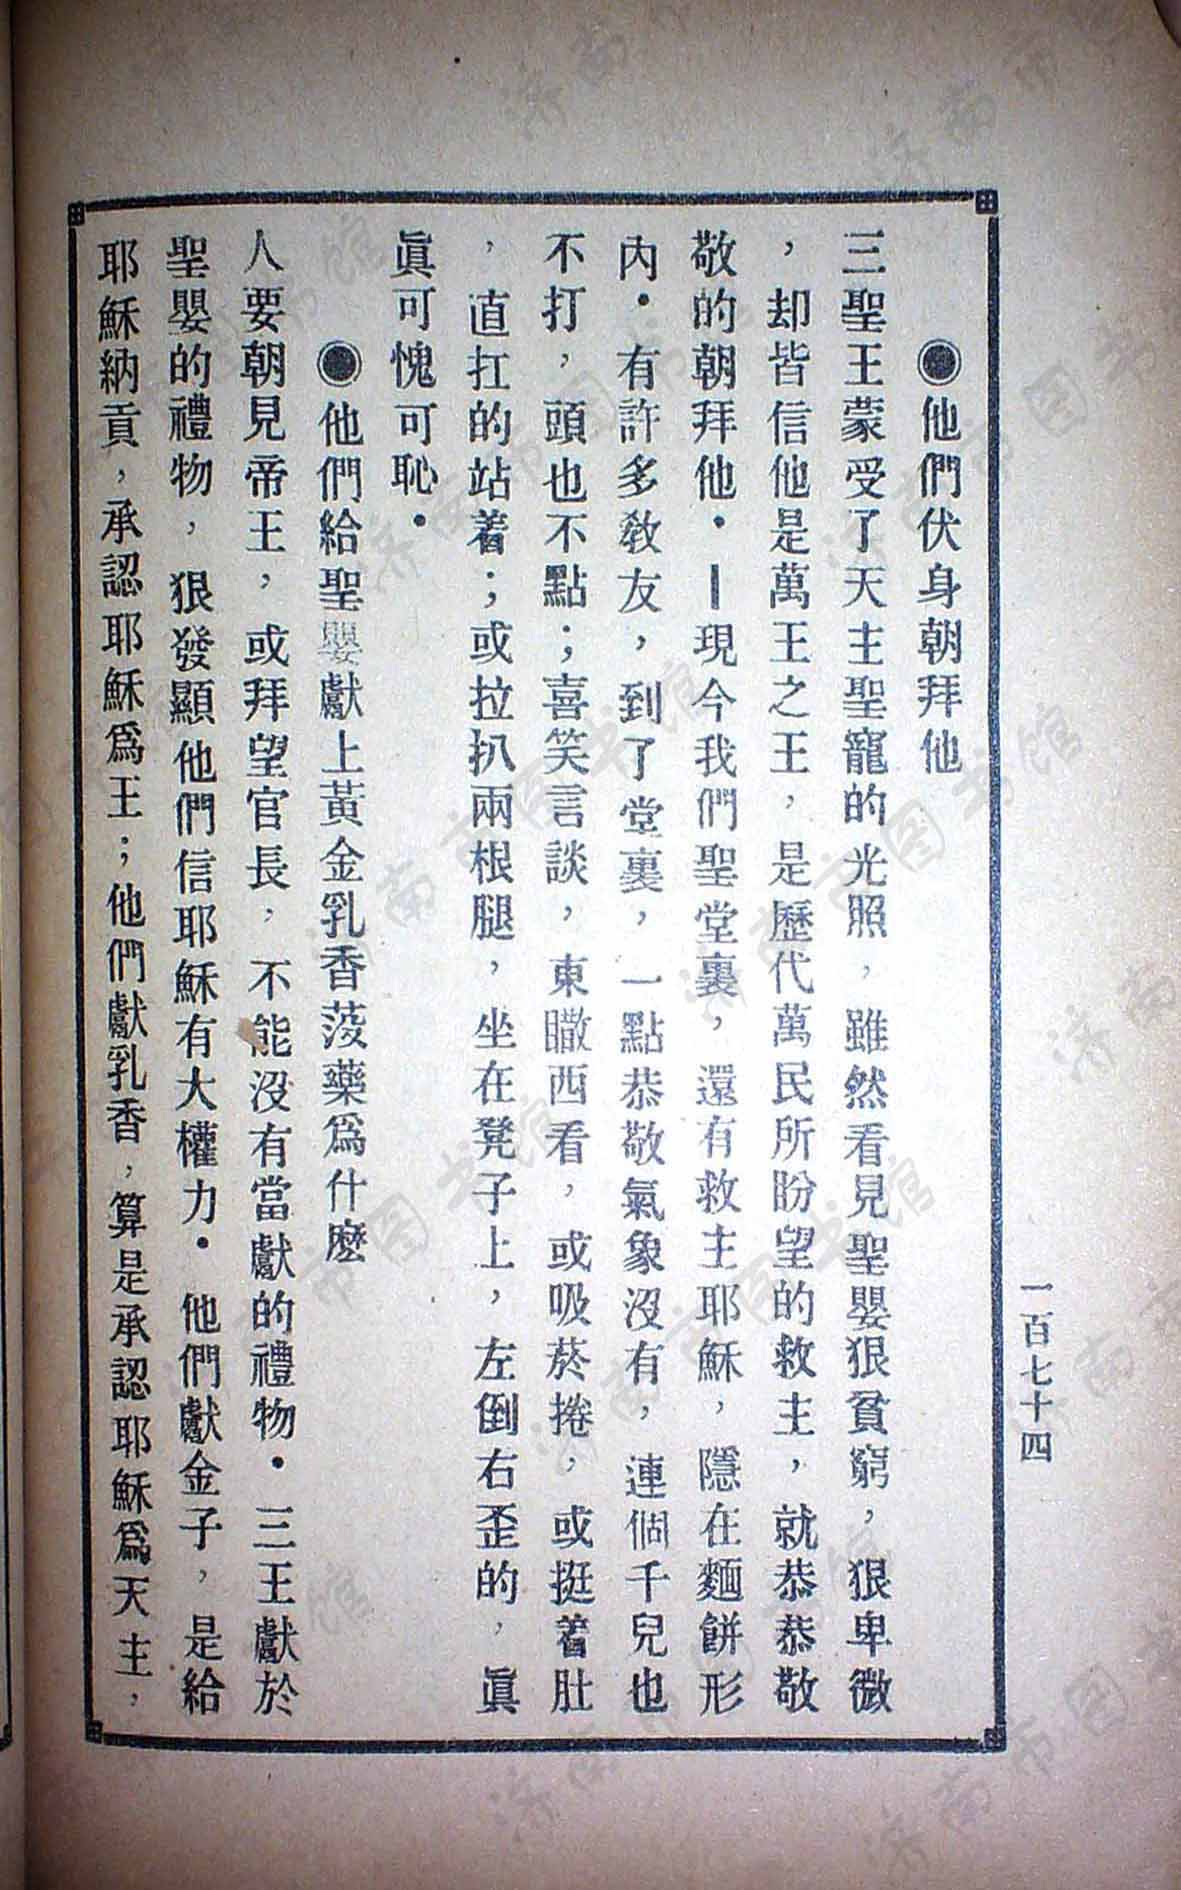 一百七十四
◉他們伏身朝拜他
三聖王蒙受了天主聖寵的光照，雖然看見聖嬰狠貧窮，狠卑微
，却皆信他是萬王之王，是歷代萬民所盼望的救主，就恭恭敬
敬的朝拜他．━現今我們聖堂裏，還有救主耶穌，隱在麵餅形
內．有許多敎友，到了堂裏，一點恭敬氣象沒有，連個千兒也
不打，頭也不點；喜笑言談，東瞰西看，或吸菸捲，或挺着肚
，直扛的站着；或拉扒兩根腿，坐在凳子上，左倒右歪的，眞
眞可愧可恥．
◉他們給聖嬰獻上黃金乳香蔆藥爲什麽
人要朝見帝王，或拜望官長，不能沒有當獻的禮物．三王獻於
聖嬰的禮物，狠發顯他們信耶穌有大權力．他們獻金子，是給
耶穌納貢，承認耶穌爲王；他們獻乳香，算是承認耶穌爲天主，
济南市图书馆